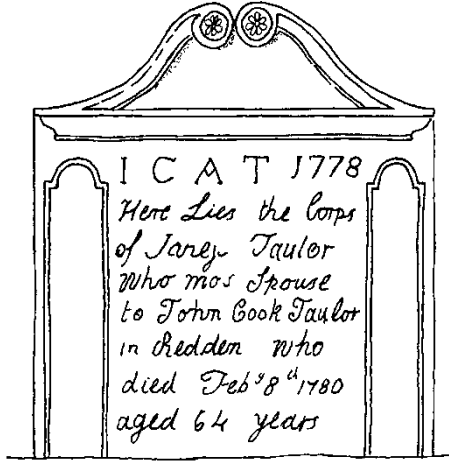 I C A T 1778
Here Lies the Corps
of Janet Taulor
Who mos Spouse
to John Cook Taulor
in Redden who
died Feb y 8 th 1780
aged 64 years